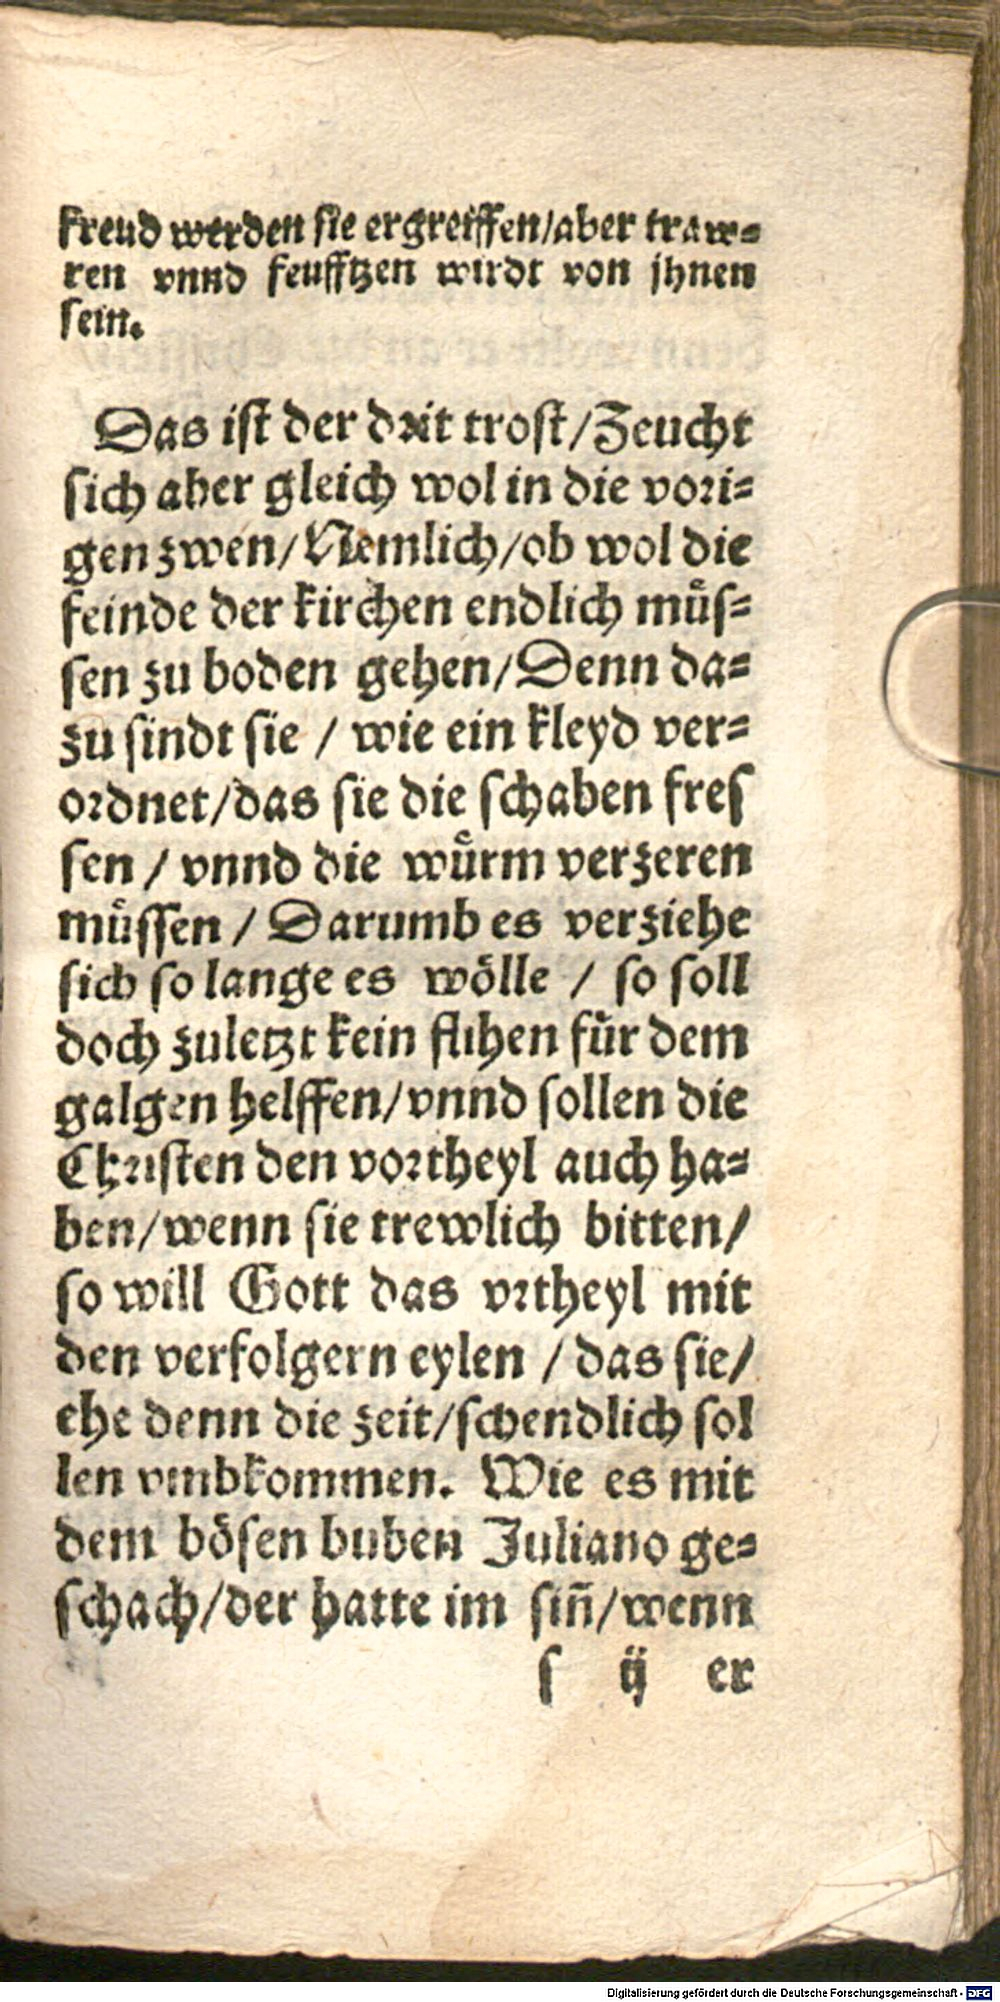 freud werden sie ergreiffen/aber traw-
ren vnnd seufftzen wirdt von jhnen
sein.
Das ist der drit trost/Zeucht
sich aber gleich wol in die vori-
gen zwen/Nemlich/ob wol die
feinde der kirchen endlich müs-
sen zu boden gehen/Denn da-
zu sindt sie / wie ein kleyd ver-
ordnet/das sie die schaben fres
sen / vnnd die würm verzeren
müssen / Darumb es verziehe
sich so lange es wölle / so soll
doch zuletzt kein flihen für dem
galgen helffen/vnnd sollen die
Christen den vortheyl auch ha-
ben/wenn sie trewlich bitten/
so will Gott das vrtheyl mit
den verfolgern eylen / das sie/
ehe denn die zeit/schendlich sol
len vmbkommen. Wie es mit
dem bösen buben Juliano ge-
schach/der hatte im siñ/wenn
s ij er
Digitalisierung gefördert durch die Deutsche Forschungsgemeinschaft - DFG